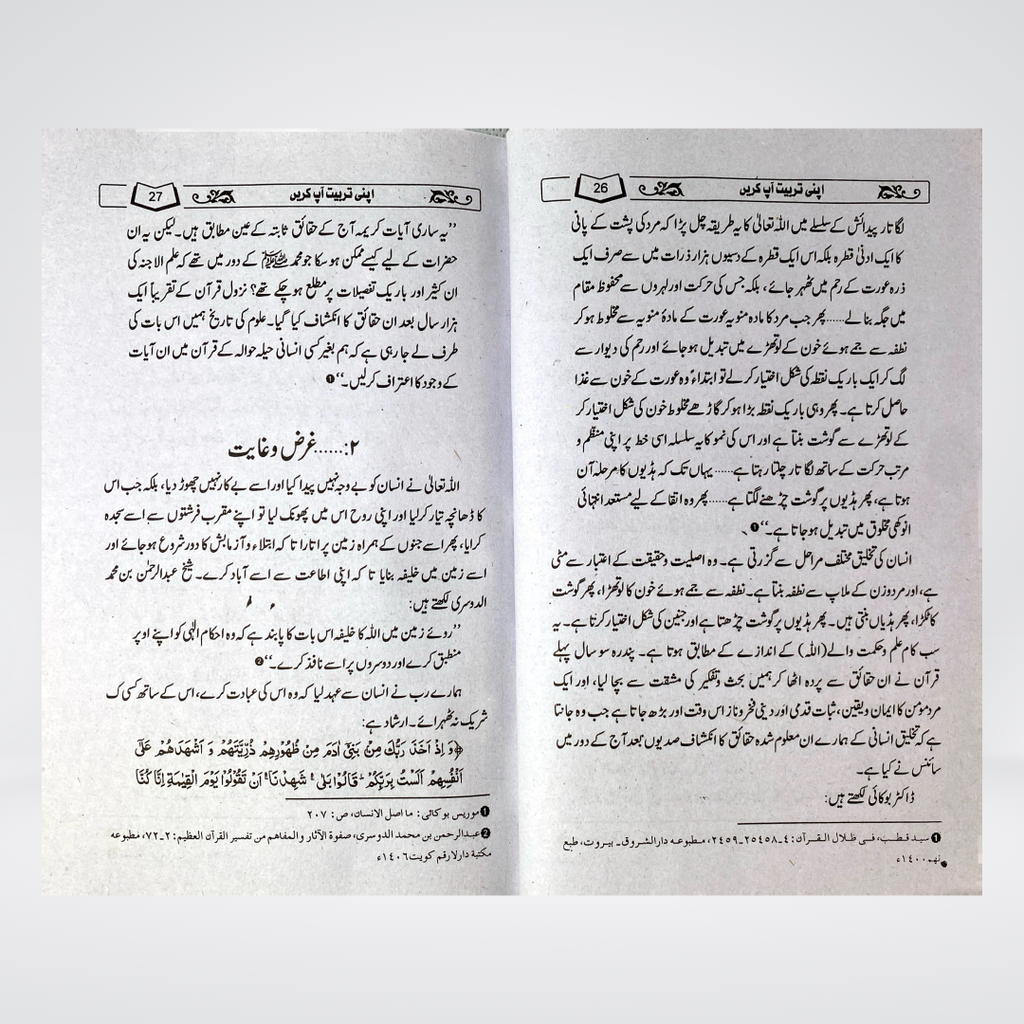 اپنی تربیت آپ کریں 26
لگا تار پیدائش کے سلسلے میں اللہ تعالیٰ کا یہ طریقہ چل پڑا کہ مرد کی پشت کے پانی
کا ایک ادنیٰ قطرہ بلکہ اس ایک قطرہ کے دسیوں ہزار ذرات میں سے صرف ایک
ذرہ عورت کے رحم میں ٹھہر جائے، بلکہ جس کی حرکت اور لہروں سے محفوظ مقام
میں جگہ بنا لے......پھر جب مرد کا مادہ منویہ عورت کے مادۂ منویہ سے مخلوط ہو کر
نطفہ سے جمے ہوئے خون کے لوتھڑے میں تبدیل ہو جائے اور رحم کی دیوار سے
لگ کر ایک باریک نقطہ کی شکل اختیار کر لے تو ابتداءً وہ عورت کے خون سے غذا
حاصل کرتا ہے۔ پھر وہی باریک نقطہ بڑا ہو کر گاڑھے مخلوط خون کی شکل اختیار کر
کے لوتھڑے سے گوشت بنتا ہے اور اس کی نمو کا یہ سلسلہ اسی خط پر اپنی منظم و
مرتب حرکت کے ساتھ لگا تار چلتا رہتا ہے...... یہاں تک کہ ہڈیوں کا مرحلہ آن
ہوتا ہے، پھر ہڈیوں پر گوشت چڑھنے لگتا ہے......پھر وہ انقا کے لیے مستعد انتہائی
انوکھی مخلوق میں تبدیل ہو جاتا ہے۔‘‘ ❶
انسان کی تخلیق مختلف مراحل سے گزرتی ہے۔ وہ اصلیت و حقیقت کے اعتبار سے مٹی
ہے، اور مرد وزن کے ملاپ سے نطفہ بنتا ہے۔ نطفہ سے جمے ہوئے خون کا لوتھڑا، پھر گوشت
کا ٹکڑا، پھر ہڈیاں بنتی ہیں۔ پھر ہڈیوں پر گوشت چڑھتا ہے اور جنین کی شکل اختیار کرتا ہے۔ یہ
سب کام علم و حکمت والے (اللہ) کے اندازے کے مطابق ہوتا ہے۔ پندرہ سو سال پہلے
قرآن نے ان حقائق سے پردہ اٹھا کر ہمیں بحث و تفکیر کی مشقت سے بچا لیا، اور ایک
مرد مومن کا ایمان و یقین، ثبات قدمی اور دینی فخر و ناز اس وقت اور بڑھ جاتا ہے جب وہ جانتا
ہے کہ تخلیق انسانی کے ہمارے ان معلوم شدہ حقائق کا انکشاف صدیوں بعد آج کے دور میں
سائنس نے کیا ہے۔
ڈاکٹر بوکائی لکھتے ہیں:
❶ سید قطب، فی ظلال القرآن: ٤۔٢٤٥٨۔٢٤٥٩، مطبوعہ دارالشروق۔ بیروت، طبع
نهم ١٤٠٠ء
اپنی تربیت آپ کریں 27
’’یہ ساری آیات کریمہ آج کے حقائق ثابتہ کے عین مطابق ہیں۔ لیکن یہ ان
حضرات کے لیے کیسے ممکن ہو سکا جو محمد ﷺ کے دور میں تھے کہ علم الاجنہ کی
ان کثیر اور باریک تفصیلات پر مطلع ہو چکے تھے؟ نزول قرآن کے تقریباً ایک
ہزار سال بعد ان حقائق کا انکشاف کیا گیا۔ علوم کی تاریخ ہمیں اس بات کی
طرف لے جا رہی ہے کہ ہم بغیر کسی انسانی حیلہ حوالہ کے قرآن میں ان آیات
کے وجود کا اعتراف کر لیں۔‘‘ ❶
٢:......غرض و غایت
اللہ تعالیٰ نے انسان کو بے وجہ نہیں پیدا کیا اور اسے بے کار نہیں چھوڑ دیا، بلکہ جب اس
کا ڈھانچہ تیار کر لیا اور اپنی روح اس میں پھونک لیا تو اپنے مقرب فرشتوں سے اسے سجدہ
کرایا، پھر اسے جنوں کے ہمراہ زمین پر اتارا تا کہ ابتلاء و آزمایش کا دور شروع ہو جائے اور
اسے زمین میں خلیفہ بنایا تا کہ اپنی اطاعت سے اسے آباد کرے۔ شیخ عبدالرحمٰن بن محمد
الدوسری لکھتے ہیں:
’’روئے زمین میں اللہ کا خلیفہ اس بات کا پابند ہے کہ وہ احکام الٰہی کو اپنے اوپر
منطبق کرے اور دوسروں پر اسے نافذ کرے۔‘‘ ❷
ہمارے رب نے انسان سے عہد لیا کہ وہ اس کی عبادت کرے، اس کے ساتھ کسی ک
شریک نہ ٹھہرائے۔ ارشاد ہے:
﴿وَ اِذْ اَخَذَ رَبُّكَ مِنْۢ بَنِیْۤ اٰدَمَ مِنْ ظُهُوْرِهِمْ ذُرِّیَّتَهُمْ وَ اَشْهَدَهُمْ عَلٰۤی
اَنْفُسِهِمْ اَلَسْتُ بِرَبِّكُمْ قَالُوْا بَلٰی شَهِدْنَا اَنْ تَقُوْلُوْا یَوْمَ الْقِیٰمَةِ اِنَّا كُنَّا
❶ موریس بوکائی: ما اصل الانسان، ص: ٢٠٧
❷ عبدالرحمن بن محمد الدوسری، صفوة الآثار والمفاهم من تفسیر القرآن العظیم: ٢۔٧٢، مطبوعه
مکتبة دارلا رقم کویت ١٤٠٦ء